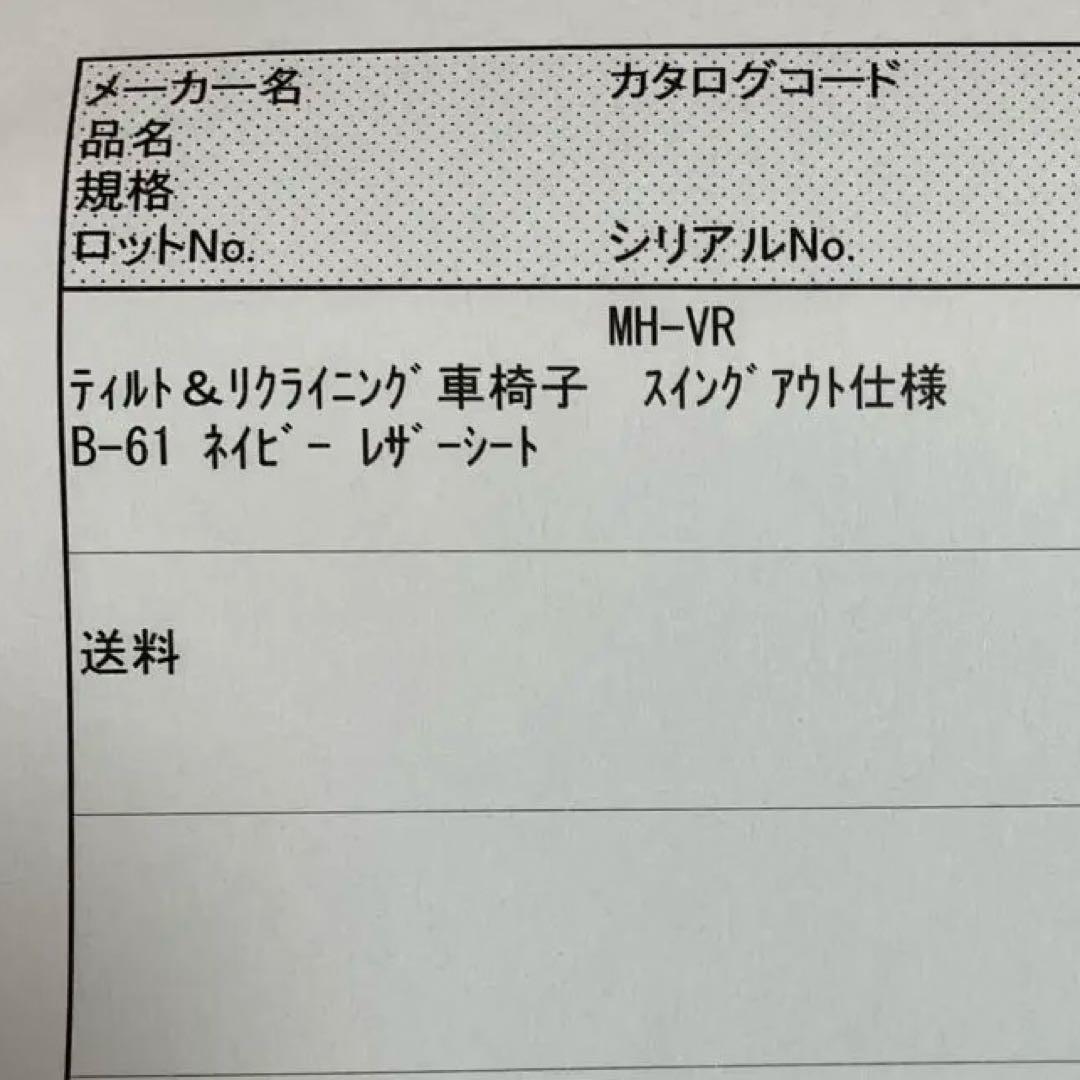 メーカー名 カタログコード
品名
規格
ロットNo. シリアルNo.
MH-VR
ティルト&リクライニング車椅子 スイングアウト仕様
B-61 ネイビー レザーシート
送料